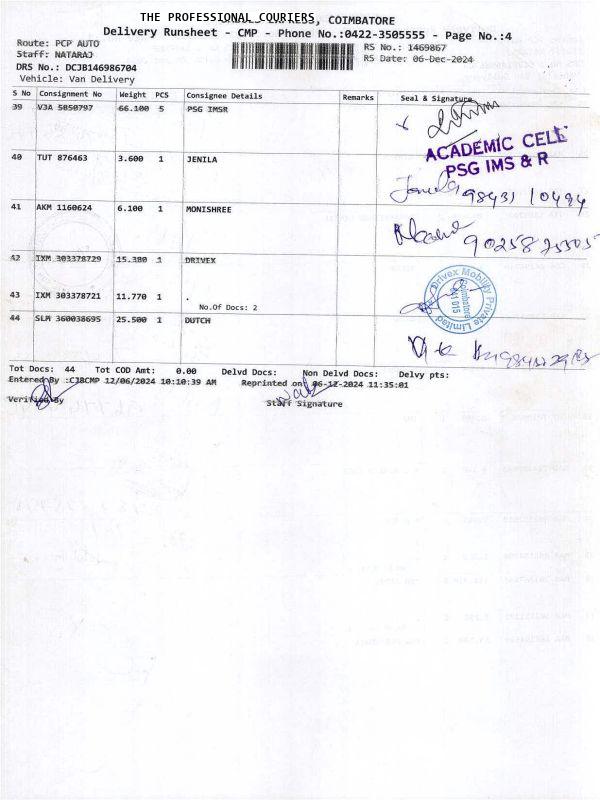 THE PROFESSIONAL COURIERS, COIMBATORE
Delivery Runsheet - CMP - Phone No.:0422-3505555 - Page No.:4
Route: PCP AUTO
RS No.: 1469867
Staff: NATARAJ
RS Date: 06-Dec-2024
DRS No.: DCJB146986704
Vehicle: Van Delivery
S No Consignment No Weight PCS Consignee Details Remarks Seal & Signature
39 VJA 5050797 66.100 5 PSG IMSR
ACADEMIC CELL
PSG IMS & R
40 TUT 876463 3.600 1 JENILA
Jenila 98431 10494
41 AKM 1160624 6.100 1 MONISHREE
42 IXM 303378729 15.380 1 DRIVEX
Drivex Mobility Private Limited
Coimbatore
641 015
43 IXM 303378721 11.770 1 .
No.Of Docs: 2
44 SLM 360038695 25.500 1 DUTCH
Tot Docs: 44 Tot COD Amt: 0.00 Delvd Docs: Non Delvd Docs: Delvy pts:
Entered By :CJBCMP 12/06/2024 10:10:39 AM Reprinted on 06-12-2024 11:35:01
Verified By
Staff Signature